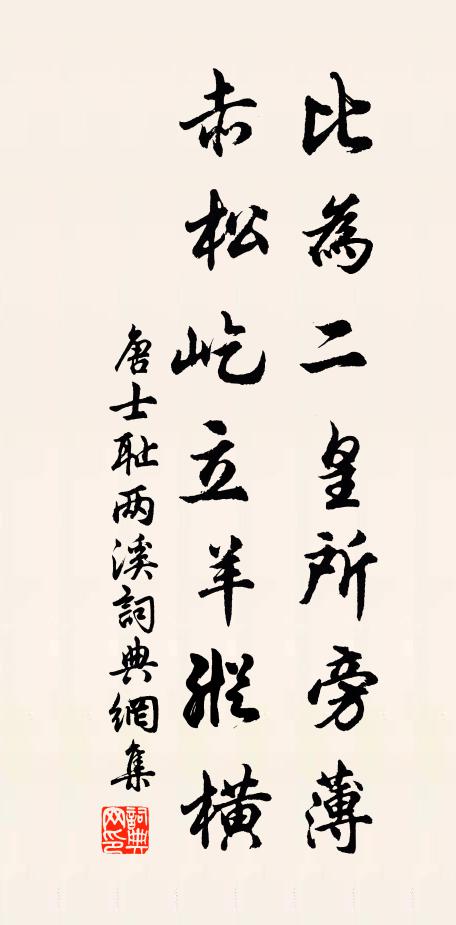 比為二皇所旁薄
赤松屹立羊縱橫
唐士耻两溪詞典網集
詞典網印